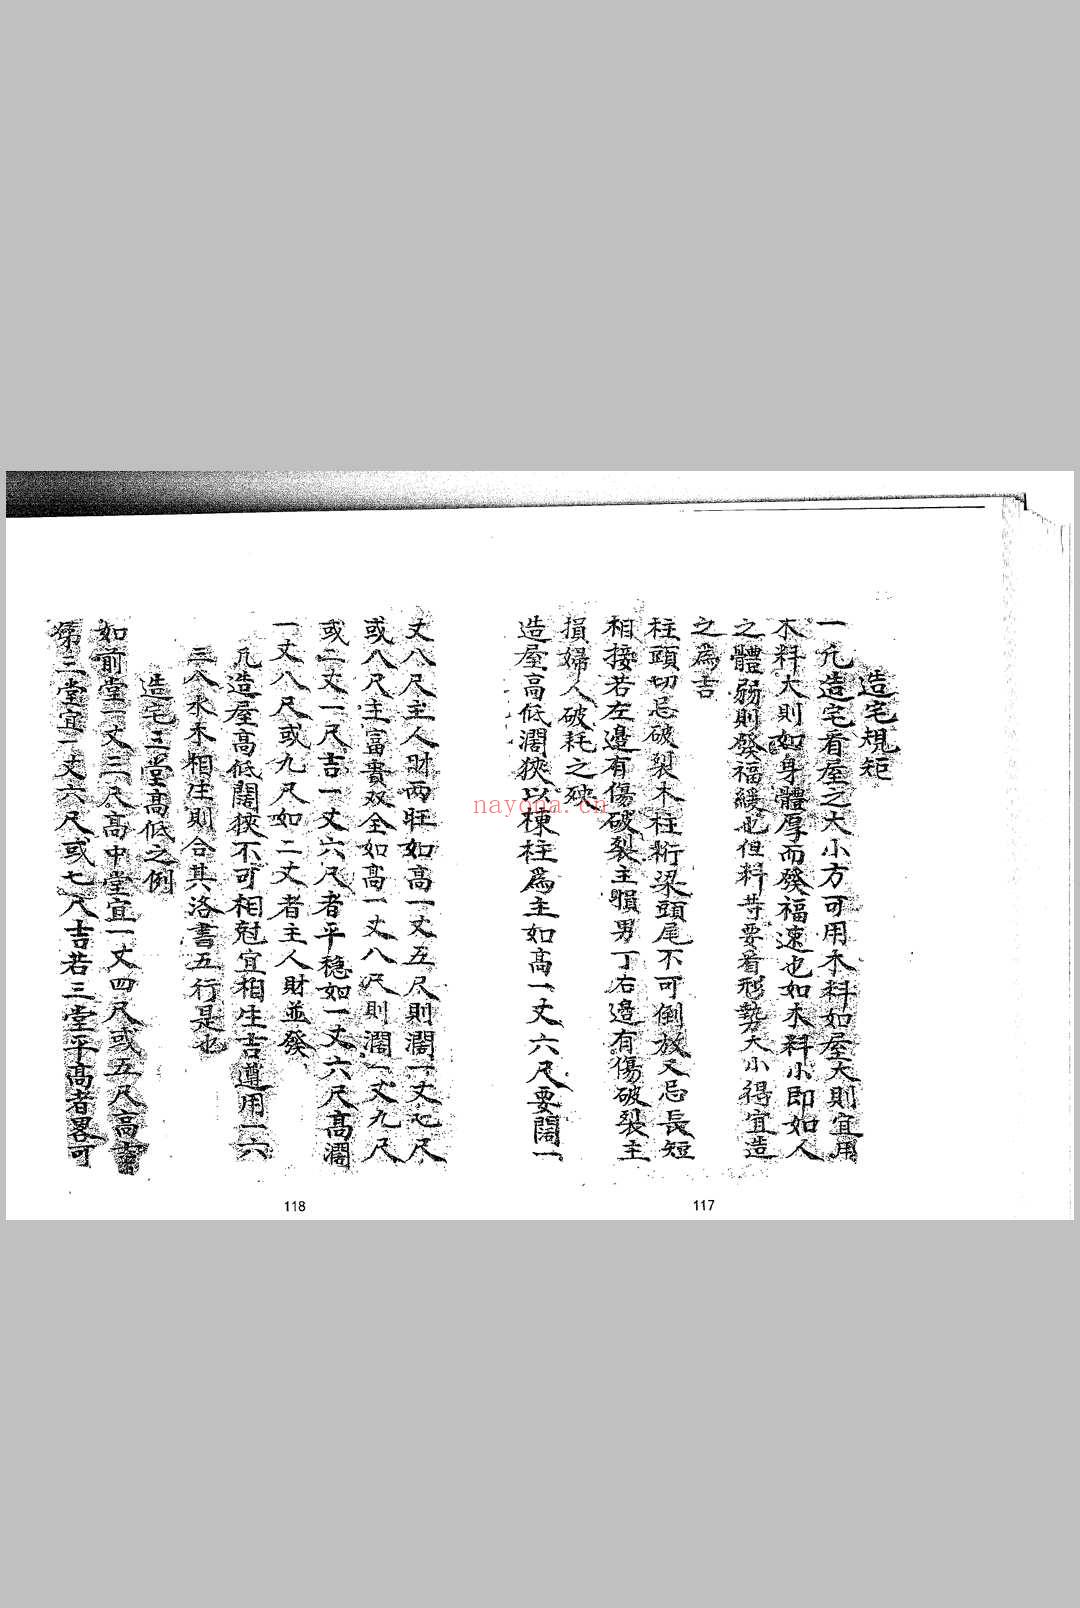 造宅規矩
一凢造宅看屋之大小方可用木料如屋大則宜用
木料大則如身體厚而發福速也如木料小即如人
之體弱則發福緩也但料苛要看形勢大小得宜造
之為吉
柱頭切忌破裂木柱桁梁頭尾不可倒放又忌長短
相接若左邉有傷破裂主損男丁右邉有傷破裂主
損婦人破耗之殃
造屋高低濶狹以棟柱為主如高一丈六尺要闊一
117
丈八尺主人財兩旺如高一丈五尺則濶一丈七尺
或八尺主富貴双全如高一丈八尺則濶一丈九尺
或二丈一尺吉一丈六尺者平穏如一丈六尺高濶
一丈八尺或九尺如二丈者主人財並發
凢造屋高低闊狹不可相尅宜相生吉遵用一六
三八水木相生則合其洛書五行是也
造宅三堂高低之例
如前堂一丈三尺高中堂宜一丈四尺或五尺高吉
第三堂宜一丈六尺或七尺吉若三堂平高者畧可
118
nayona.cn